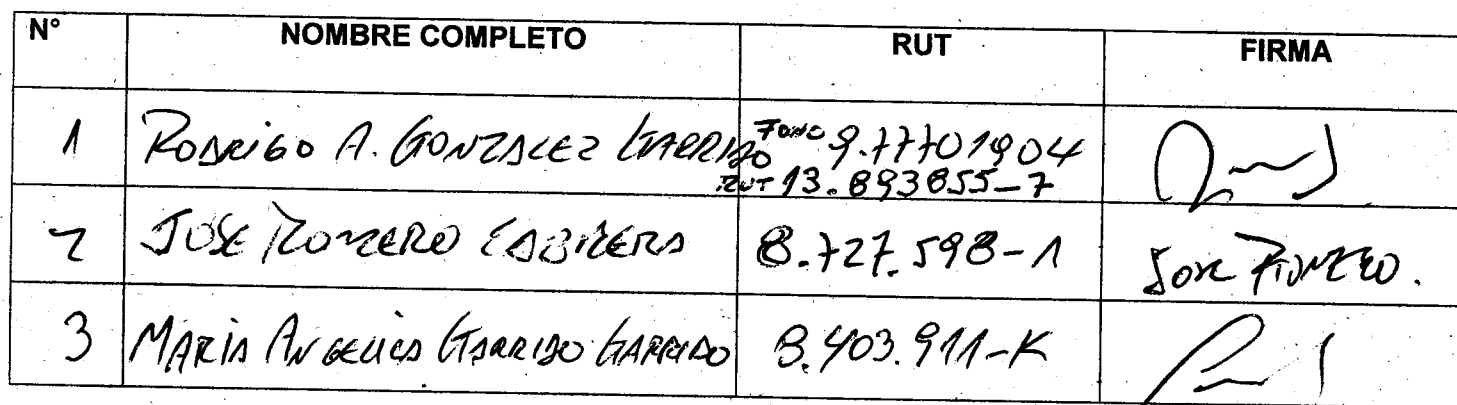 N° NOMBRE COMPLETO RUT FIRMA
1 RODRIGO A. GONZALEZ GARRIDO FONO 9.77701904
RUT 13.893855-7
2 JOSE ROMERO CABRERA 8.727.598-1 JOSE ROMERO.
3 MARIA ANGELICA GARRIDO GARRIDO 8.403.911-K